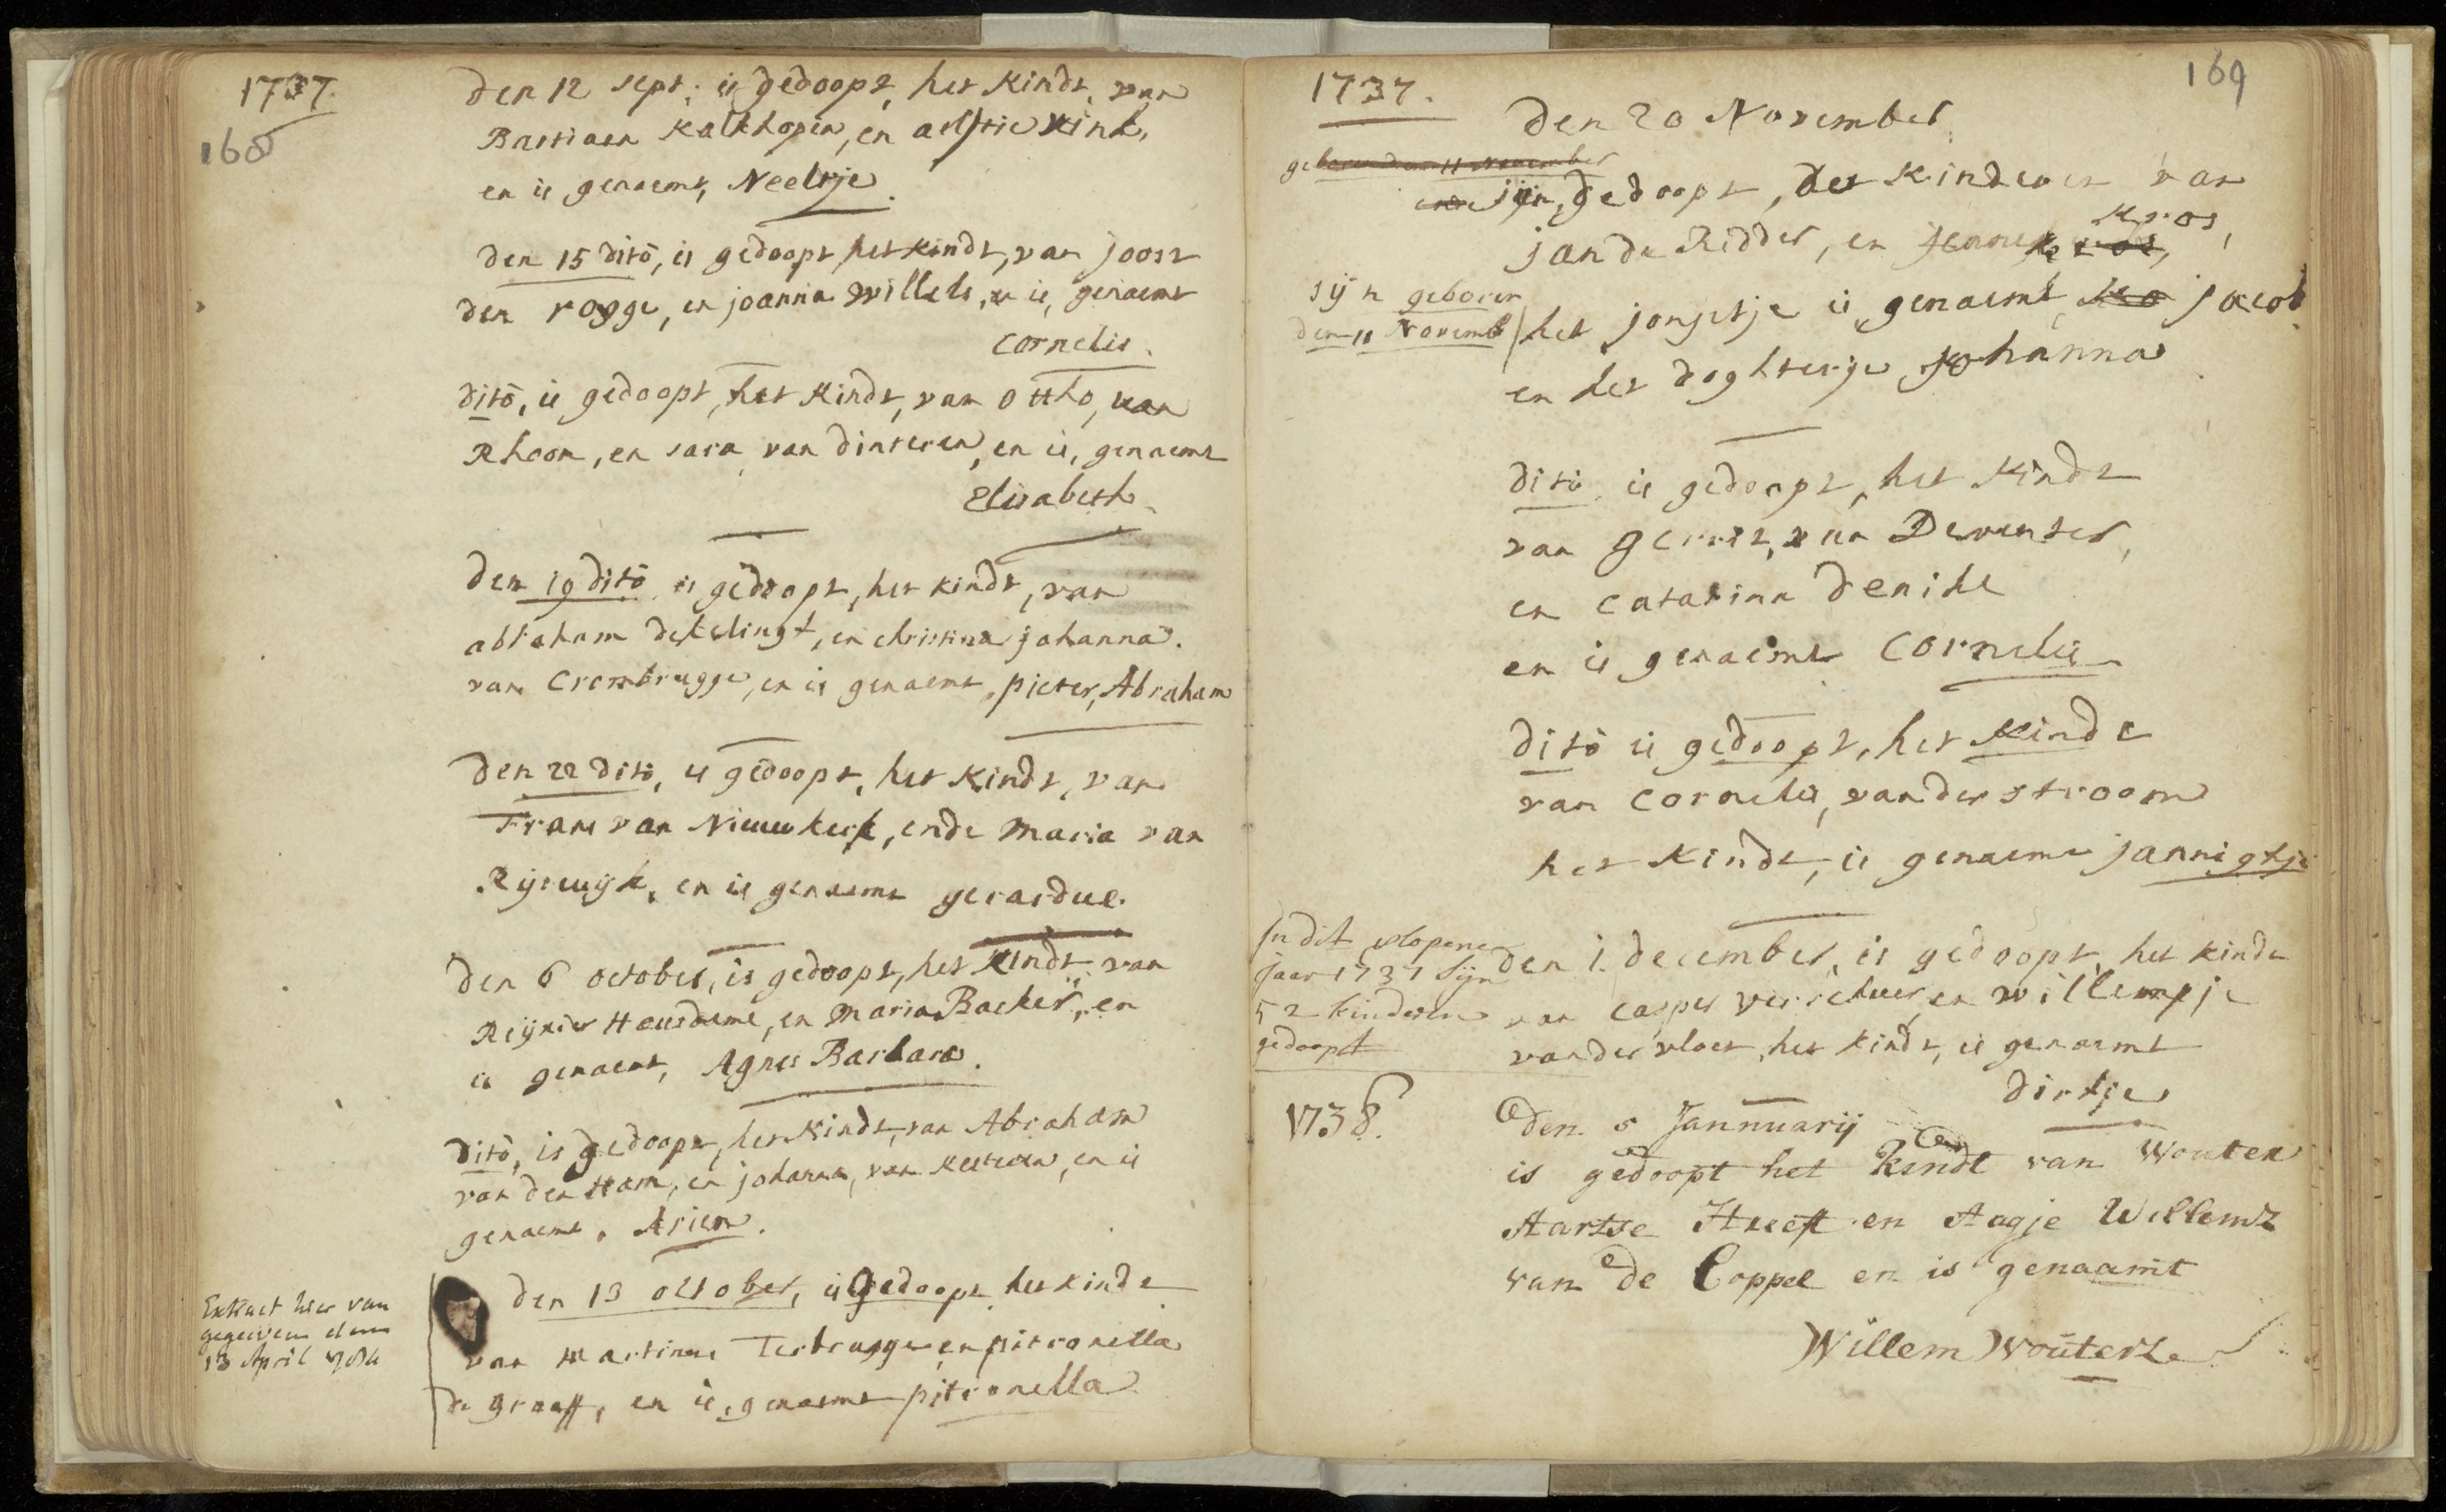 1737.
168
den 12 sept: is gedoopt, het Kindt, van
Bastiaen Kalkhopen, en aeltie Kink,
en is genaemt, Neeltje.
den 15 dito, is gedoopt het Kindt, van joost
den rogge, en joanna Willels, en is, genaemt
Cornelis.
dito, is gedoopt, het Kindt, van Ottho, van
Rhoon, en sara van dinteren, en is, genaemt
Elisabeth.
den 19 dito is gedoopt, het kindt, van
abraham, en christina johanna.
van Crombrugge, en is genaemt, pieter, Abraham
den 22 dito, is gedoopt, het Kindt, van
Frans van Nieuwkerk, ende Maria van
Rijswijk, en is genaemt gerardus.
den 6 october, is gedoopt, het Kindt, van
Reijnier, en Maria Backer, en
is genaemt, Agnes Barbara.
dito, is gedoopt, het Kindt, van Abraham
van den Ham, en johanna, van Kesteren, en is
genaemt, Arien.
Extract hier van
gegeeven den
13 April
den 13 october, is gedoopt het kindt
van Martinus Terbrugge en pitronella
de graaff, en is, genaemt pitronella
1737.
169
den 20 November
geboren den 11 November
sijn, gedoopt, de Kinderen van
jan de Ridder, en Kros,
sijn geboren
den 11 Novemb
het jongetje is genaemt jacob
en het doghtertje Johanna
dito is gedoopt, het Kindt
van gerrit, van Deventer,
en Catarina denike
en is genaemt Cornelis
dito is gedoopt, het Kindt
van Cornelis, van der stroom
het Kindt, is genaemt jannigtje
In dit
jaar 1737 Sijn
52 kinderen
gedoopt
den 1. december, is gedoopt, het kindt
van Casper verschuer, en willempje
van der vloet, het kindt, is genaemt
dirkje
1738.
Den 5 Jannuarij
is gedoopt het Kindt van Wouter
Aartse Streeft en Aagje Willemz
van de Coppel en is genaamt
Willem Wouterz